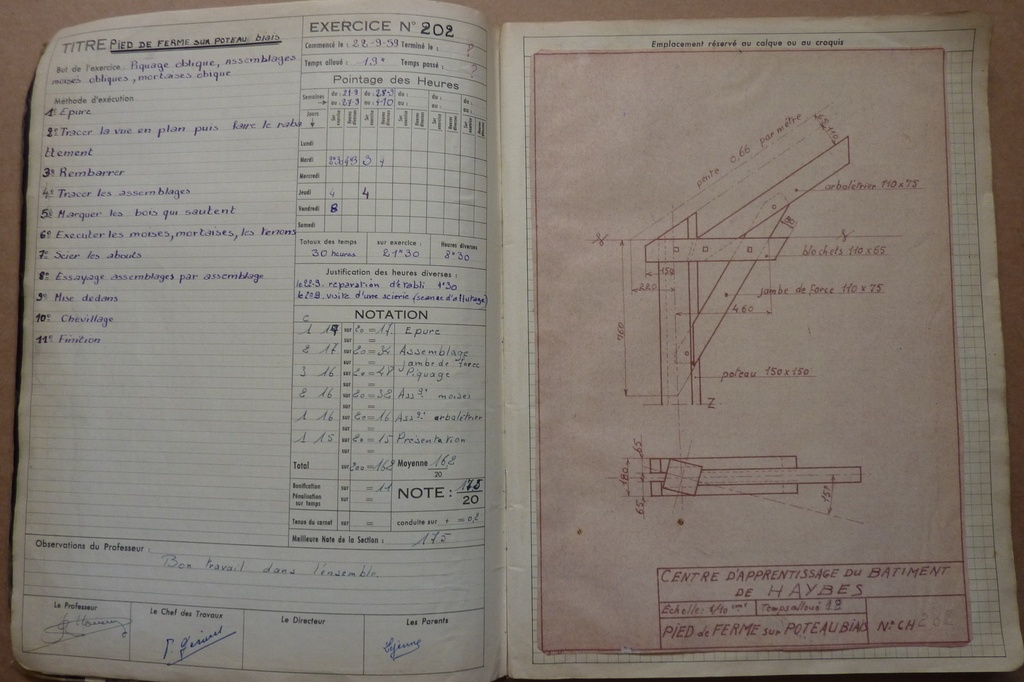 TITRE PIED DE FERME SUR POTEAU biais
But de l'exercice: Piquage oblique, assemblages
moises obliques, mortaises oblique
Méthode d'exécution
1° Epure
2° Tracer la vue en plan puis faire le raba
ttement
3° Rembarrer
4° Tracer les assemblages
5° Marquer les bois qui sautent
6° Executer les moises, mortaises, les tenons
7° Scier les abouts
8° Essayage assemblages par assemblage
9° Mise dedans
10° Chevillage
11° Finition
EXERCICE N° 202
Commencé le : 22-9-59 Terminé le : ?
Temps alloué : 19h Temps passé : ?
Pointage des Heures
Semaines
du : 21-9 du : 28-9 du : du : du :
au : 27-9 au : 4-10 au : au : au :
Jours
Sur exercice Heures diverses
Lundi
Mardi 3 4
Mercredi
Jeudi 4 4
Vendredi 8
Samedi
Totaux des temps sur exercice : Heures diverses
30 heures 21h30 8h30
Justification des heures diverses :
le 22-9. reparation d'établi 1h30
visite d'une scierie (seance d'affutage)
C NOTATION
1 17 sur 20 = 17 Epure
2 17 sur 20 = 34 Assemblage jambe de force
3 16 sur 20 = 48 Piquage
2 16 sur 20 = 32 Ass.gt moises
1 16 sur 20 = 16 Ass.gt arbalétrier
1 15 sur 20 = 15 Présentation
Total sur 200 = 162 Moyenne 16,2 / 20
Bonification sur = 11
Pénalisation sur temps =
NOTE : 17,5 / 20
Tenue du carnet sur = conduite sur + = 0,2
Meilleure Note de la Section : 17,5
Observations du Professeur :
Bon travail dans l'ensemble.
Le Professeur
Le Chef des Travaux
Le Directeur
Les Parents
Emplacement réservé au calque ou au croquis
pente 0,66 par mètre
65 110
arbalétrier 110 x 75
90
blochets 110 x 65
154
220
jambe de force 110 x 75
460
760
poteau 150 x 150
Z
65
180
65
15°
CENTRE D'APPRENTISSAGE DU BATIMENT
DE HAYBES
Echelle: 1/10 eme Temps alloué 19
PIED de FERME sur POTEAU BIAIS N° CH 202